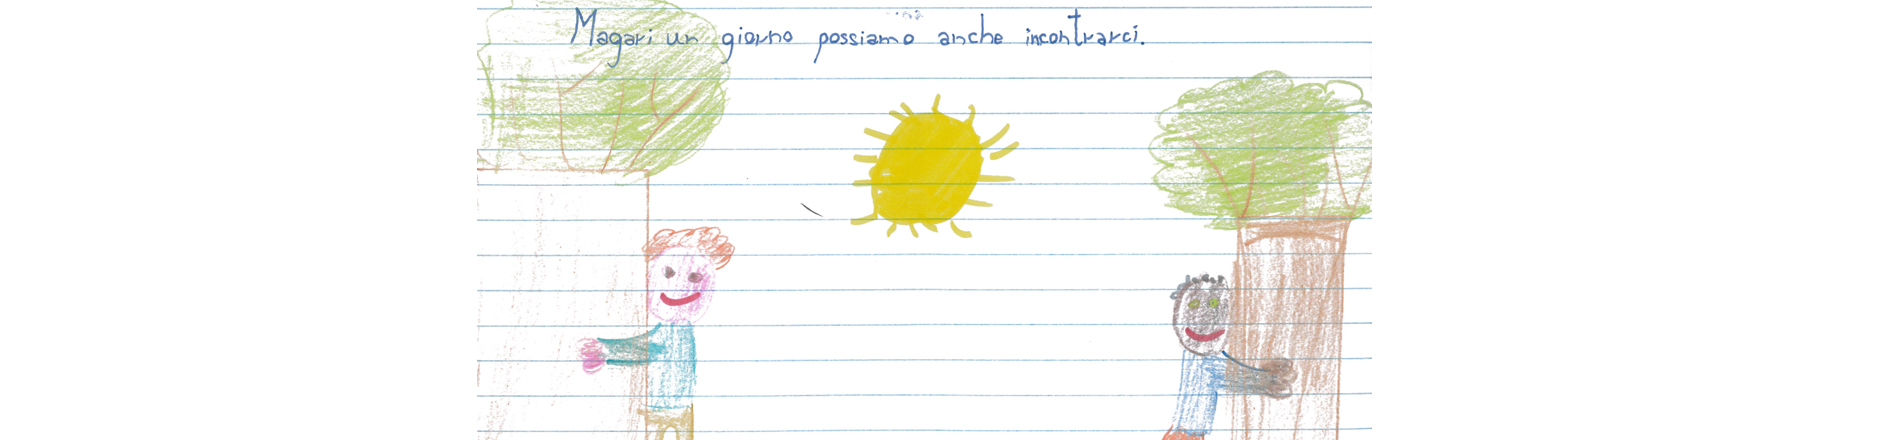 Magari un giorno possiamo anche incontrarci.